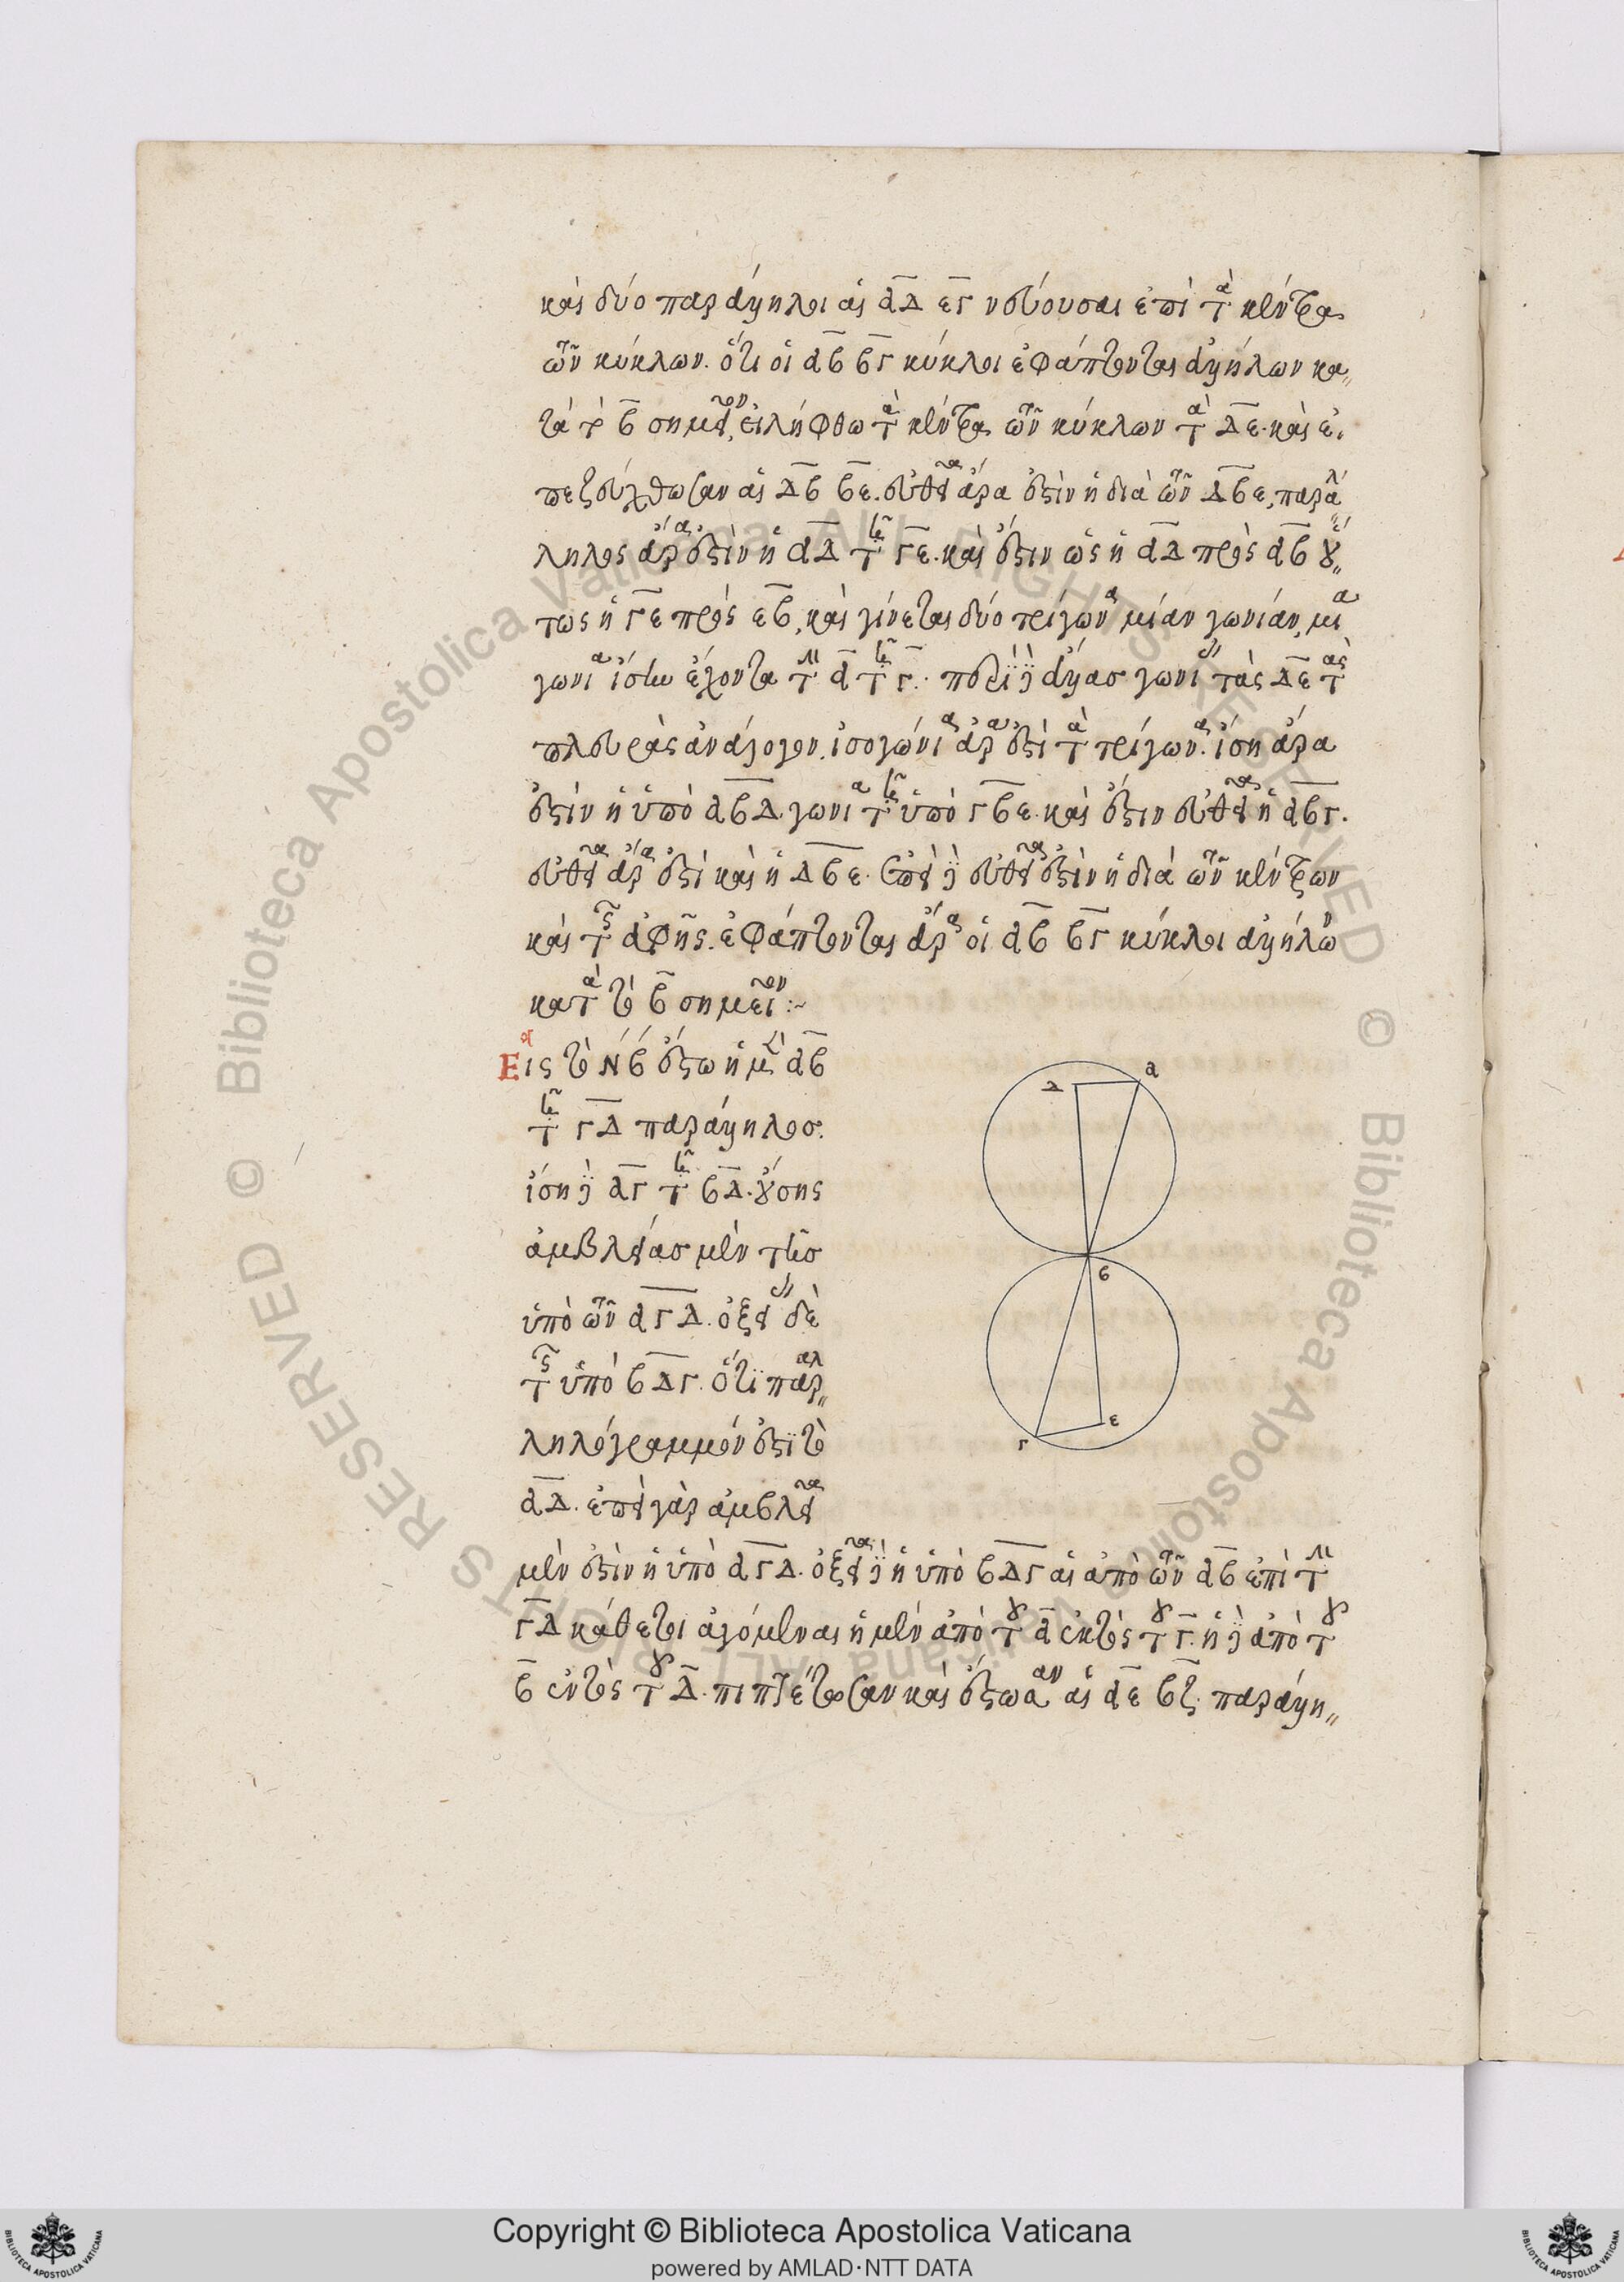 καὶ δύο παράλληλοι αἱ ΑΔ ΕΓ νεύουσαι ἐπὶ τὰ κέντρα
τῶν κύκλων. ὅτι οἱ ΑΒ ΒΓ κύκλοι ἐφάπτονται ἀλλήλων κα
τὰ τὸ Β σημεῖον, εἰλήφθω τὰ κέντρα τῶν κύκλων τὰ ΔΕ. καὶ ἐ
πεζεύχθωσαν αἱ ΔΒ ΒΕ. εὐθεῖα ἄρα ἐστὶν ἡ διὰ τῶν ΔΒΕ, παράλ
ληλος ἄρα ἐστὶν ἡ ΑΔ τῇ ΓΕ. καὶ ἔστιν ὡς ἡ ΑΔ πρὸς ΑΒ οὕ
τως ἡ ΓΕ πρὸς ΕΒ, καὶ γίνεται δύο τρίγωνα μίαν γωνίαν, μιᾶ
γωνία ἴσην ἔχοντα τὴν Α τῇ Γ. περὶ δὲ ἄλλας γωνίας τὰς ΔΕ τὰς
πλευρὰς ἀνάλογον. ἰσογώνια ἄρα ἐστὶ τὰ τρίγωνα. ἴση ἄρα
ἐστὶν ἡ ὑπὸ ΑΒΔ γωνία τῇ ὑπὸ ΓΒΕ. καὶ ἔστιν εὐθεῖα ἡ ΑΒΓ.
εὐθεῖα ἄρα ἐστὶ καὶ ἡ ΔΒΕ. ἐπεὶ δὲ εὐθεῖα ἐστὶν ἡ διὰ τῶν κέντρων
καὶ τῆς ἀφῆς. ἐφάπτονται ἄρα οἱ ΑΒ ΒΓ κύκλοι ἀλλήλων
κατὰ τὸ Β σημεῖον :~
Εἰς τὸ ΝΒ ἔστω ἡ μὲν ΑΒ
τῇ ΓΔ παράλληλος.
ἴση δὲ ΑΓ τῇ ΒΔ. οὔσης
ἀμβλείας μὲν τῆς
ὑπὸ τῶν ΑΓΔ. ὀξείας δὲ
τῆς ὑπὸ ΒΔΓ. ὅτι παραλ
ληλόγραμμόν ἐστι τὸ
ΑΔ. ἐπεὶ γὰρ ἀμβλεῖα
μὲν ἐστὶν ἡ ὑπὸ ΑΓΔ. ὀξεῖα δὲ ἡ ὑπὸ ΒΔΓ αἱ ἀπὸ τῶν ΑΒ ἐπὶ τὴν
ΓΔ κάθετοι ἀγόμεναι ἡ μὲν ἀπὸ τοῦ Α ἐκτὸς τοῦ Γ. ἡ δὲ ἀπὸ τοῦ
Β ἐντὸς τοῦ Δ. πιπτέτωσαν καὶ ἔστωσαν αἱ ΑΕ ΒΖ. παράλλη
Δ
Α
Β
Ε
Γ
Copyright © Biblioteca Apostolica Vaticana
powered by AMLAD·NTT DATA